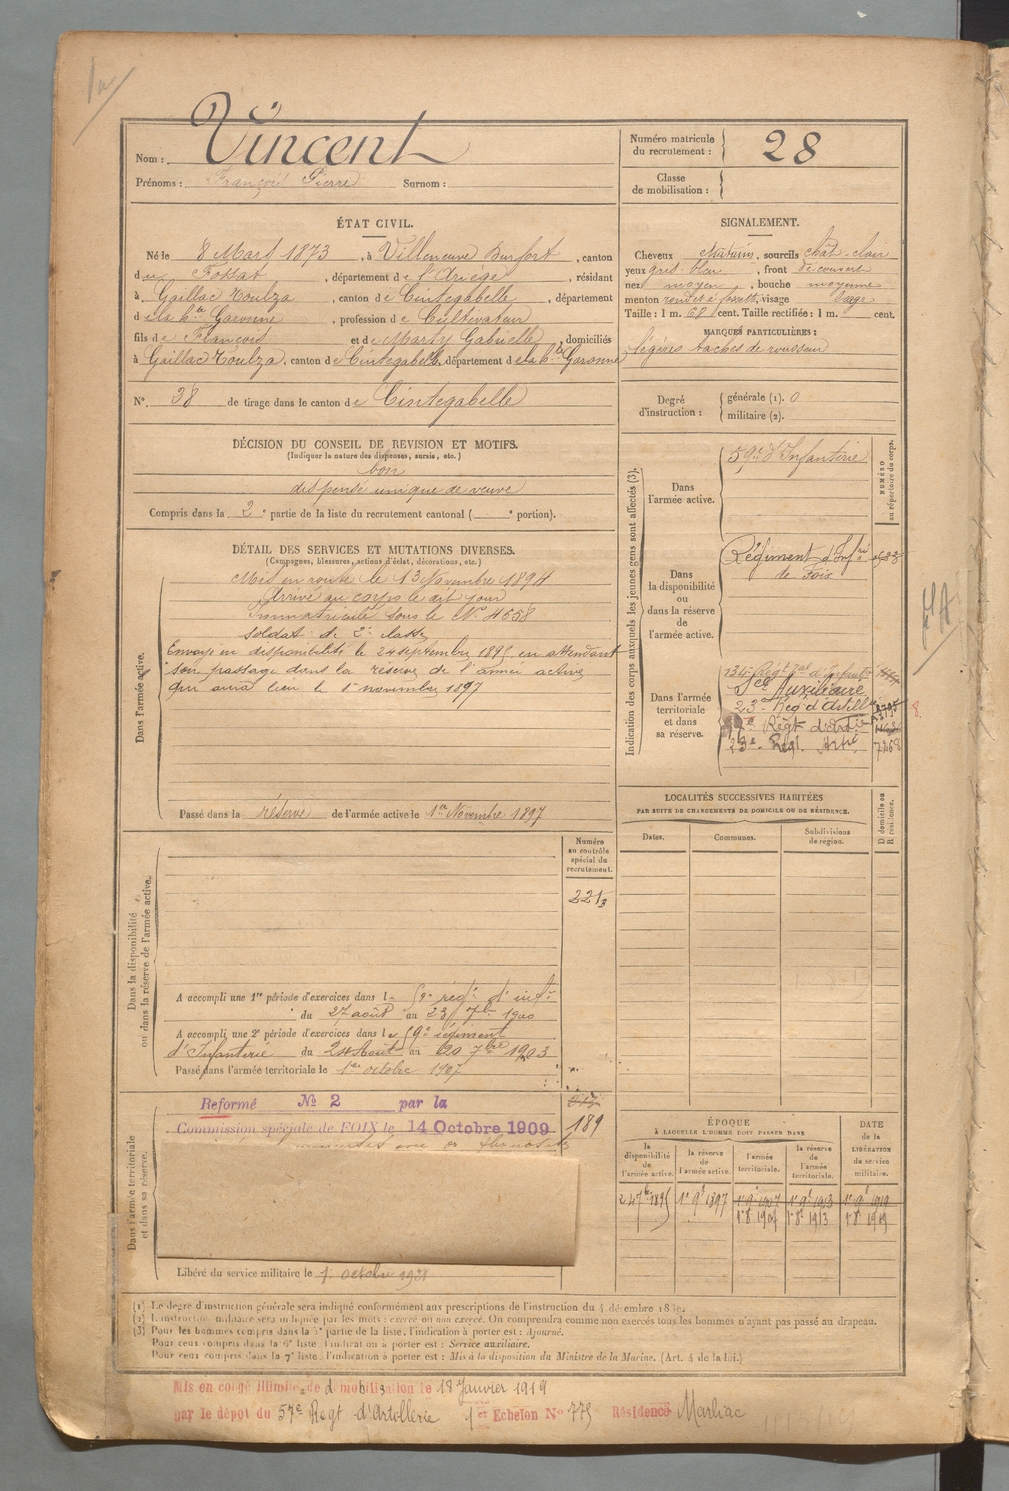 Nom : Vincent
Prénoms : François Pierre Surnom :
Numéro matricule du recrutement : 28
Classe de mobilisation :
ÉTAT CIVIL.
Né le 8 Mars 1873, à Villeneuve Durfort, canton
du Fossat, département de l'Ariège, résidant
à Gaillac Toulza, canton de Cintegabelle, département
de la Hte Garonne, profession de Cultivateur
fils de François et de Marty Gabrielle, domiciliés
à Gaillac Toulza, canton de Cintegabelle, département de la Hte Garonne
N° 38 de tirage dans le canton de Cintegabelle
SIGNALEMENT.
Cheveux châtains, sourcils chât-clair
yeux gris-bleu, front découvert
nez moyen, bouche moyenne
menton rond et à fossette, visage large
Taille : 1 m. 68 cent. Taille rectifiée : 1 m. cent.
MARQUES PARTICULIÈRES :
légères taches de rousseur
Degré d'instruction : générale (1). 0
militaire (2).
DÉCISION DU CONSEIL DE REVISION ET MOTIFS.
(Indiquer la nature des dispenses, sursis, etc.)
bon
dispensé unique de veuve
Compris dans la 2e partie de la liste du recrutement cantonal ( e portion).
DÉTAIL DES SERVICES ET MUTATIONS DIVERSES.
(Campagnes, blessures, actions d'éclat, décorations, etc.)
Dans l'armée active.
Mis en route le 13 Novembre 1894
Arrivé au corps le dit jour
Immatriculé sous le N° 4658
soldat de 2e classe
Envoyé en disponibilité le 24 septembre 1895 en attendant
son passage dans la réserve de l'armée active
qui aura lieu le 1er novembre 1897
Passé dans la réserve de l'armée active le 1er Novembre 1897
Indication des corps auxquels les jeunes gens sont affectés (3).
NUMÉRO au répertoire du corps.
Dans l'armée active.
59e d'Infanterie
Dans la disponibilité ou dans la réserve de l'armée active.
Régiment d'Infrie
de Foix
Dans l'armée territoriale et dans sa réserve.
134e Régt Tal d'Infanterie
Son Auxiliaire
23e Reg d'Artill
Régt d'Artie
23e Regt Artie 7268
8.
LOCALITÉS SUCCESSIVES HABITÉES
PAR SUITE DE CHANGEMENTS DE DOMICILE OU DE RÉSIDENCE.
Dates. Communes. Subdivisions de région. D domicile ou R résidence.
Dans la disponibilité ou dans la réserve de l'armée active.
Numéro au contrôle spécial du recrutement.
2213
A accompli une 1re période d'exercices dans le 59e régt d'infie
du 27 août au 23 7bre 1900
A accompli une 2e période d'exercices dans le 59e régiment
d'Infanterie du 24 Août au 20 7bre 1903
Passé dans l'armée territoriale le 1er octobre 1907
Dans l'armée territoriale et dans sa réserve.
Reformé No 2 par la
Commission spéciale de FOIX le 14 Octobre 1909
189
Libéré du service militaire le 1er octobre 1921
ÉPOQUE
À LAQUELLE L'HOMME DOIT PASSER DANS
la disponibilité de l'armée active. la réserve de l'armée active. l'armée territoriale. la réserve de l'armée territoriale.
DATE de la LIBÉRATION du service militaire.
24 7bre 1895 1er 9bre 1897 1er 9bre 1907 1er 9bre 1913 1er 9bre 1919
1er 8bre 1907 1er 8bre 1913 1er 8bre 1919
(1) Le degré d'instruction générale sera indiqué conformément aux prescriptions de l'instruction du 4 décembre 1889.
(2) L'instruction militaire sera indiquée par les mots : exercé ou non exercé. On comprendra comme non exercés tous les hommes n'ayant pas passé au drapeau.
(3) Pour les hommes compris dans la 5e partie de la liste, l'indication à porter est : Ajourné.
Pour ceux compris dans la 6e liste, l'indication à porter est : Service auxiliaire.
Pour ceux compris dans la 7e liste, l'indication à porter est : Mis à la disposition du Ministre de la Marine. (Art. 4 de la loi.)
Mis en congé illimité de démobilisation le 18 Janvier 1919
par le dépot du 57e Regt d'Artillerie 1er Echelon N° 775 Résidence Marliac